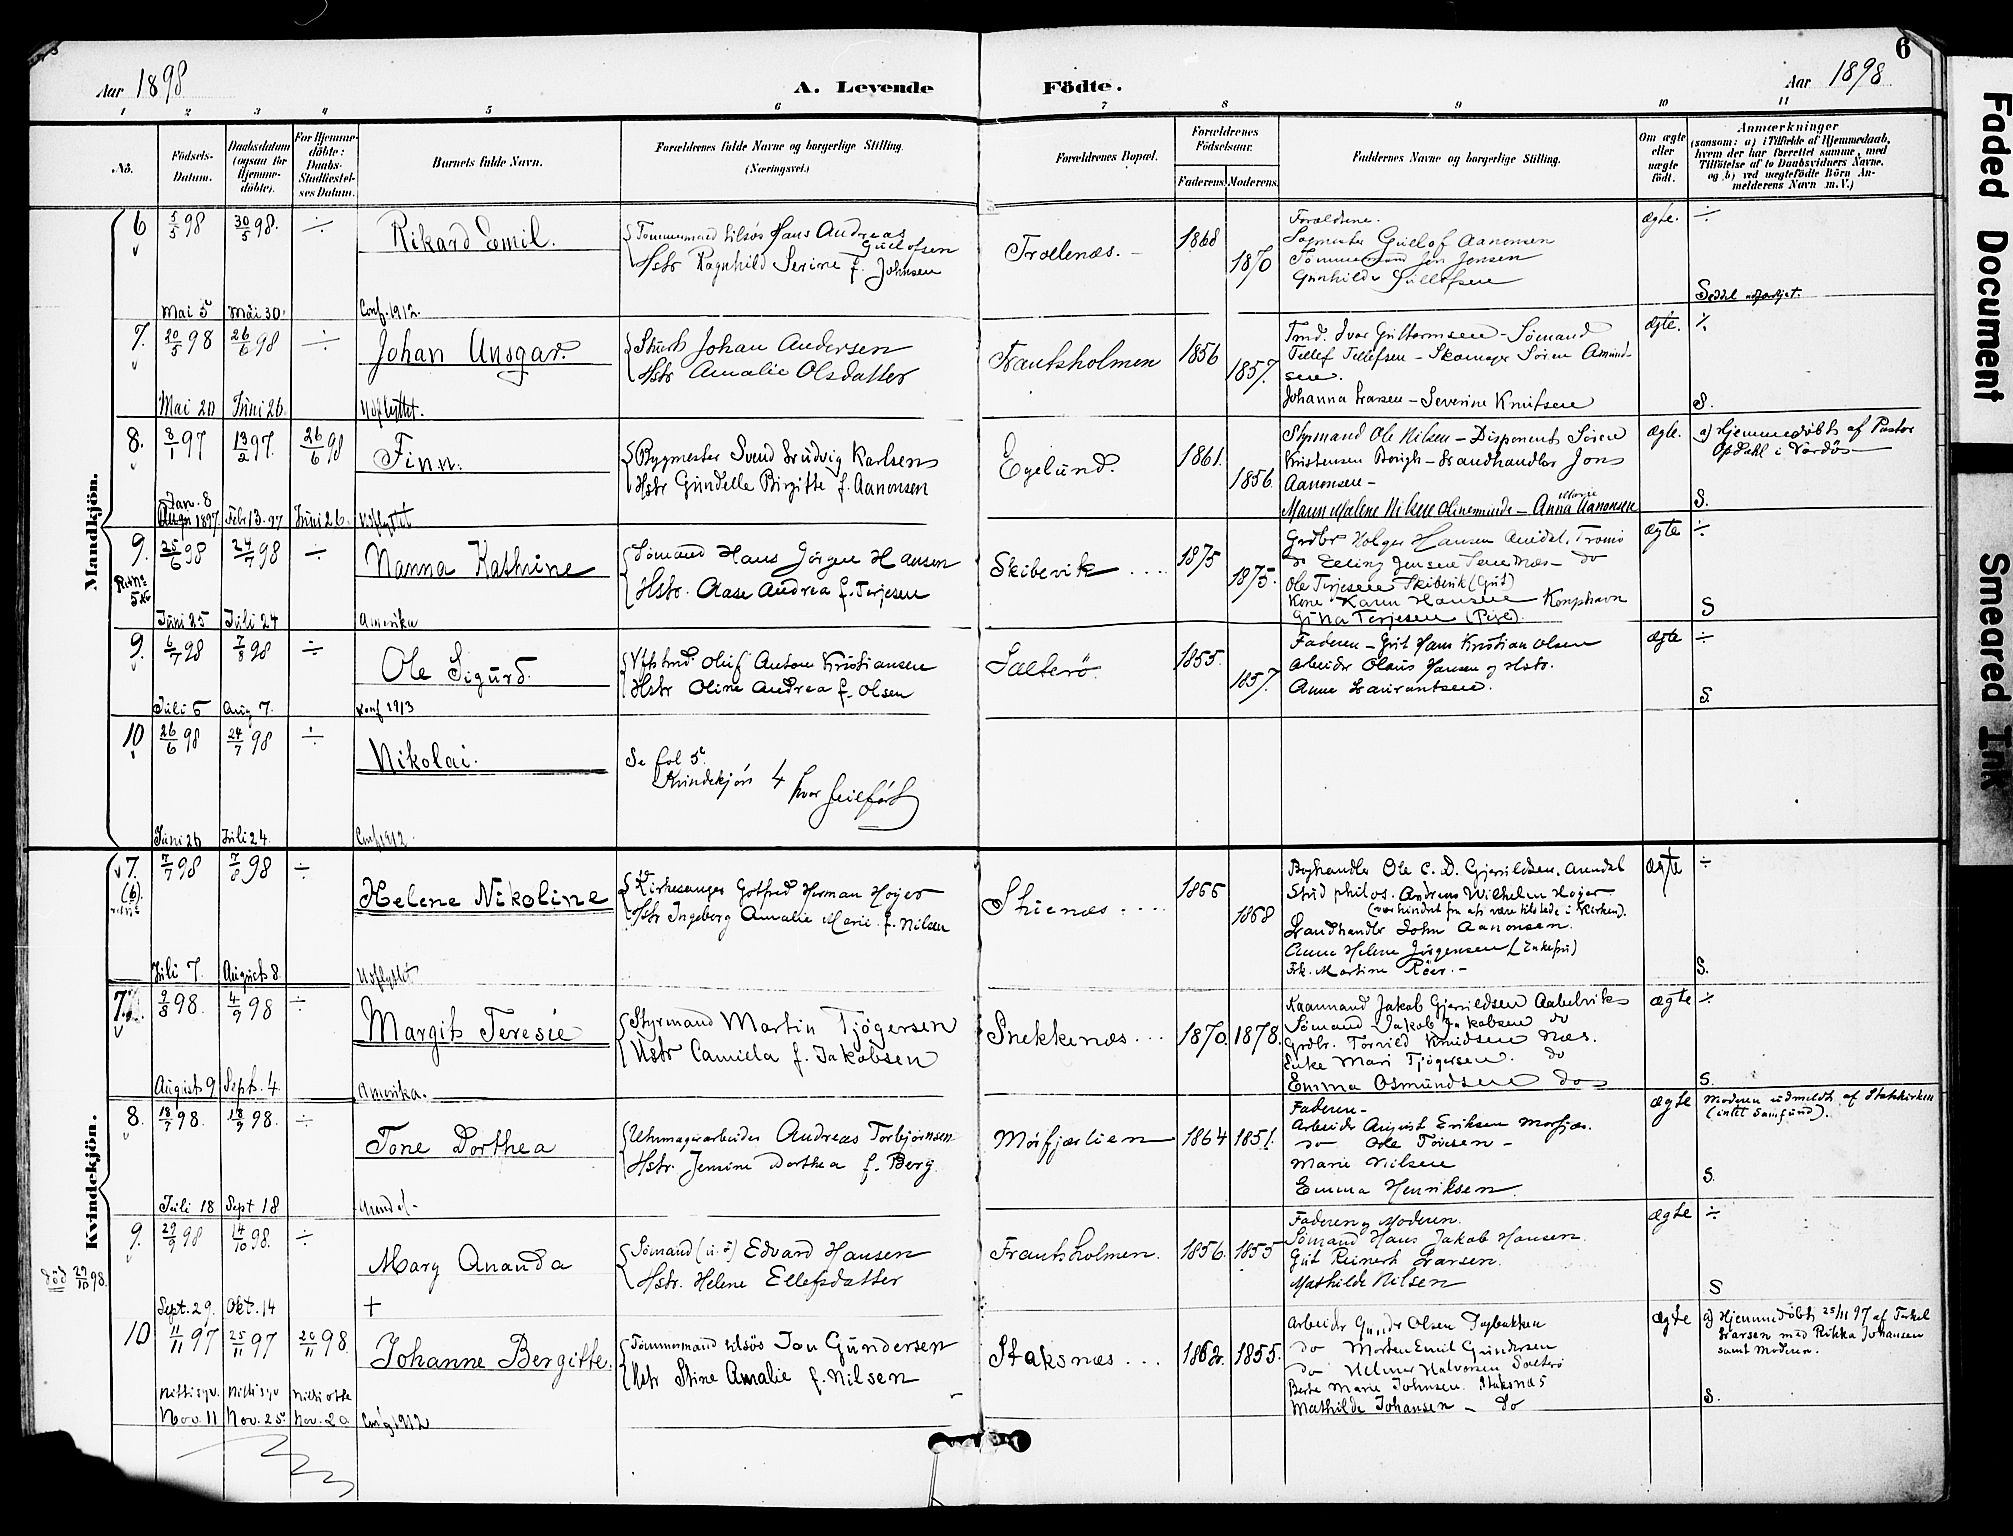 6
Aar 1898
A. Levende Födte.
Aar 1898
1 2 3 4 5 6 7 8 9 10 11
No.
Födsels-
Datum.
Daabsdatum
(ogsaa for
Hjemme-
döbte).
For Hjemme-
döbte:
Daabs-
Stadfæstel-
ses Datum.
Barnets fulde Navn.
Forældrenes fulde Navne og borgerlige Stilling.
(Næringsvei.)
Forældrenes Bopæl.
Forældrenes
Födselsaar.
Faderens. Moderens.
Faddernes Navne og borgerlige Stilling.
Om ægte
eller
uægte
födt.
Anmærkninger
(saasom: a) i Tilfælde af Hjemmedaab,
hvem der har forrettet samme, med
Tilföielse af to Daabsvidners Navne.
og b) ved uægtefödte Börn An-
melderens Navn m. V.)
Mandkjön.
6 5/5 98 30/5 98. ÷ Rikard Emil.
Tømmermand tilsøs Hans Andreas
Gullofsen
Hstr Ragnhild Serine f. Johnsen
Trollenæs. 1868 1870
Forældrene.
Gullof Aanonsen
Tømmermand Jen Jensen
Gunhilde Gullofsen
ægte. ÷
Mai 5 Mai 30. Conf. 1912.
Seddel udfærdiget.
7. 20/5 98 26/6 98 ÷ Johan Ansgar.
Johan Andersen
Hstr Amalie Olsdatter
Frantsholmen 1856 1857.
Tmd. Ivar Guttormsen – Sømand
Tellef Tellefsen – Skomager Søren Amund-
sen.
Johanna Larsen – Severine Knutsen
ægte. ÷
Mai 20 Juni 26. Udflyttet.
S.
8. 8/1 97 13/2 97. 26/6 98 Finn.
Bygmester Svend Ludvig Karlsen
Hstr Gundelle Birgitte f. Aanonsen
Egelund. 1861. 1856.
Styrmand Ole Nilsen – Disponent Søren
Kristensen Borigh – Landhandler Jons
Aanonsen –
Maren Malene Nilsen Olineminde – Anna Marie Aanonsen
ægte. a) Hjemmedøbt af Pastor
Opdahl i Vardø
Jan. 8
1897 Febr 13. 97 Juni 26. Udflyttet
S.
9. 25/6 98 24/7 98 ÷ Nanna Kathrine
Sømand Hans Jørgen Hansen
Hstr. Aase Andrea f. Terjesen
Skibevik 1875 1875.
Grdbr Holger Hansen Arendal, Tromø
do Elling Jensen do
Ole Terjesen Skibevik (Gut)
Kone Karen Hansen Kongshavn
Gina Terjesen (Pige).
ægte ÷
Juni 25 Juli 24 Amerika
S
9. 6/7 98 7/8 98 ÷ Ole Sigurd.
Oluf Anton Kristiansen
Hstr Oline Andrea f. Olsen
Salterø. 1855. 1857.
Faderen – Gut Hans Kristian Olsen
Arbeider Olaus Hansen og Hstr.
Anne Laurantsen.
ægte ÷
Juli 6 Aug 7. Konf 1913
S.
10 26/6 98 24/7 98 ÷ Nikolai.
Se fol 5.
Kvindekjön 4 hvor feilført
Juni 26 Juli 24. Conf 1912
Kvindekjön.
7. (6). 7/7 98 7/8 98 ÷ Helene Nikoline
Kirkesanger Gotfred Herman Høyer
Hstr Ingeborg Amalie Marie f. Nilsen
Stienæs. 1866 1868
Boghandler Ole C. D. Gjerildsen. Arendal
Stud philos. Andreas Wilhelm Høyer
(var hindret fra at være tilstede i Kirken).
Landhandler John Aanonsen.
Anne Helene Jørgensen (Enkefru)
Frk. Martine Röer. –
ægte ÷
Juli 7. August 8. Udflyttet
S.
7. 9/8 98. 4/9 98 ÷ Margit Teresie
Styrmand Martin Tjøgersen
Hstr Camilla f. Jakobsen
Snekkenæs. 1870. 1878.
Kaanmand Jakob Gjerildsen Aabelvik
Sømand Jakob Jakobsen do
Grdbr. Torvild Knudsen Næs.
Enke Mari Tjøgersen. do
Emma Osmundsen do
ægte ÷
August 9 Sept. 4. Amerika.
S.
8. 18/7 98. 18/9 98. ÷ Tone Dorthea
Uhrmagerarbeider Andreas Torbjørnsen
Hstr. Jensine Dorthea f. Berg.
Morfjærlien 1864 1851.
Faderen –
Arbeider August Eriksen Morfjær.
do Ole Tovesen –
Marie Nilsen
Emma Henriksen.
ægte Moderen udmeldt af Statskirken
(intet Samfund).
Juli 18 Sept 18 Arendal
S.
9. 29/9 98 14/10 98. ÷ Mary Ananda
Sømand Edvard Hansen
Hstr. Helene Ellefsdatter
Frantsholmen. 1856. 1855
Faderen og Moderen.
Sømand Hans Jakob Hansen.
Gut Reinert Larsen.
Mathilde Nilsen
ægte ÷
død 29/10 98.
Sept. 29. Okt. 14 +
S
10 11/11 97 25/11 97 20/11 98. Johanne Bergitte.
Tømmermand tilsøs Jon Gundersen
Hstr Stine Amalie f. Nilsen
Staksnæs 1862. 1855.
Arbeider Gunder Olsen Dybakken
do Morten Emil Gundersen
do Helmer Halvorsen Salterø
Berte Marie Johnsen. Staksnæs
Mathilde Johansen – do
ægte a) Hjemmedøbt 25/11 97 af Terkel
Larsen med Rikka Johansen
samt Moderen.
Nittisyv Nittisyv Nitti otte
Nov. 11 Nov. 25 Nov. 20 Conf 1912
S.
Faded Document
Smeared Ink